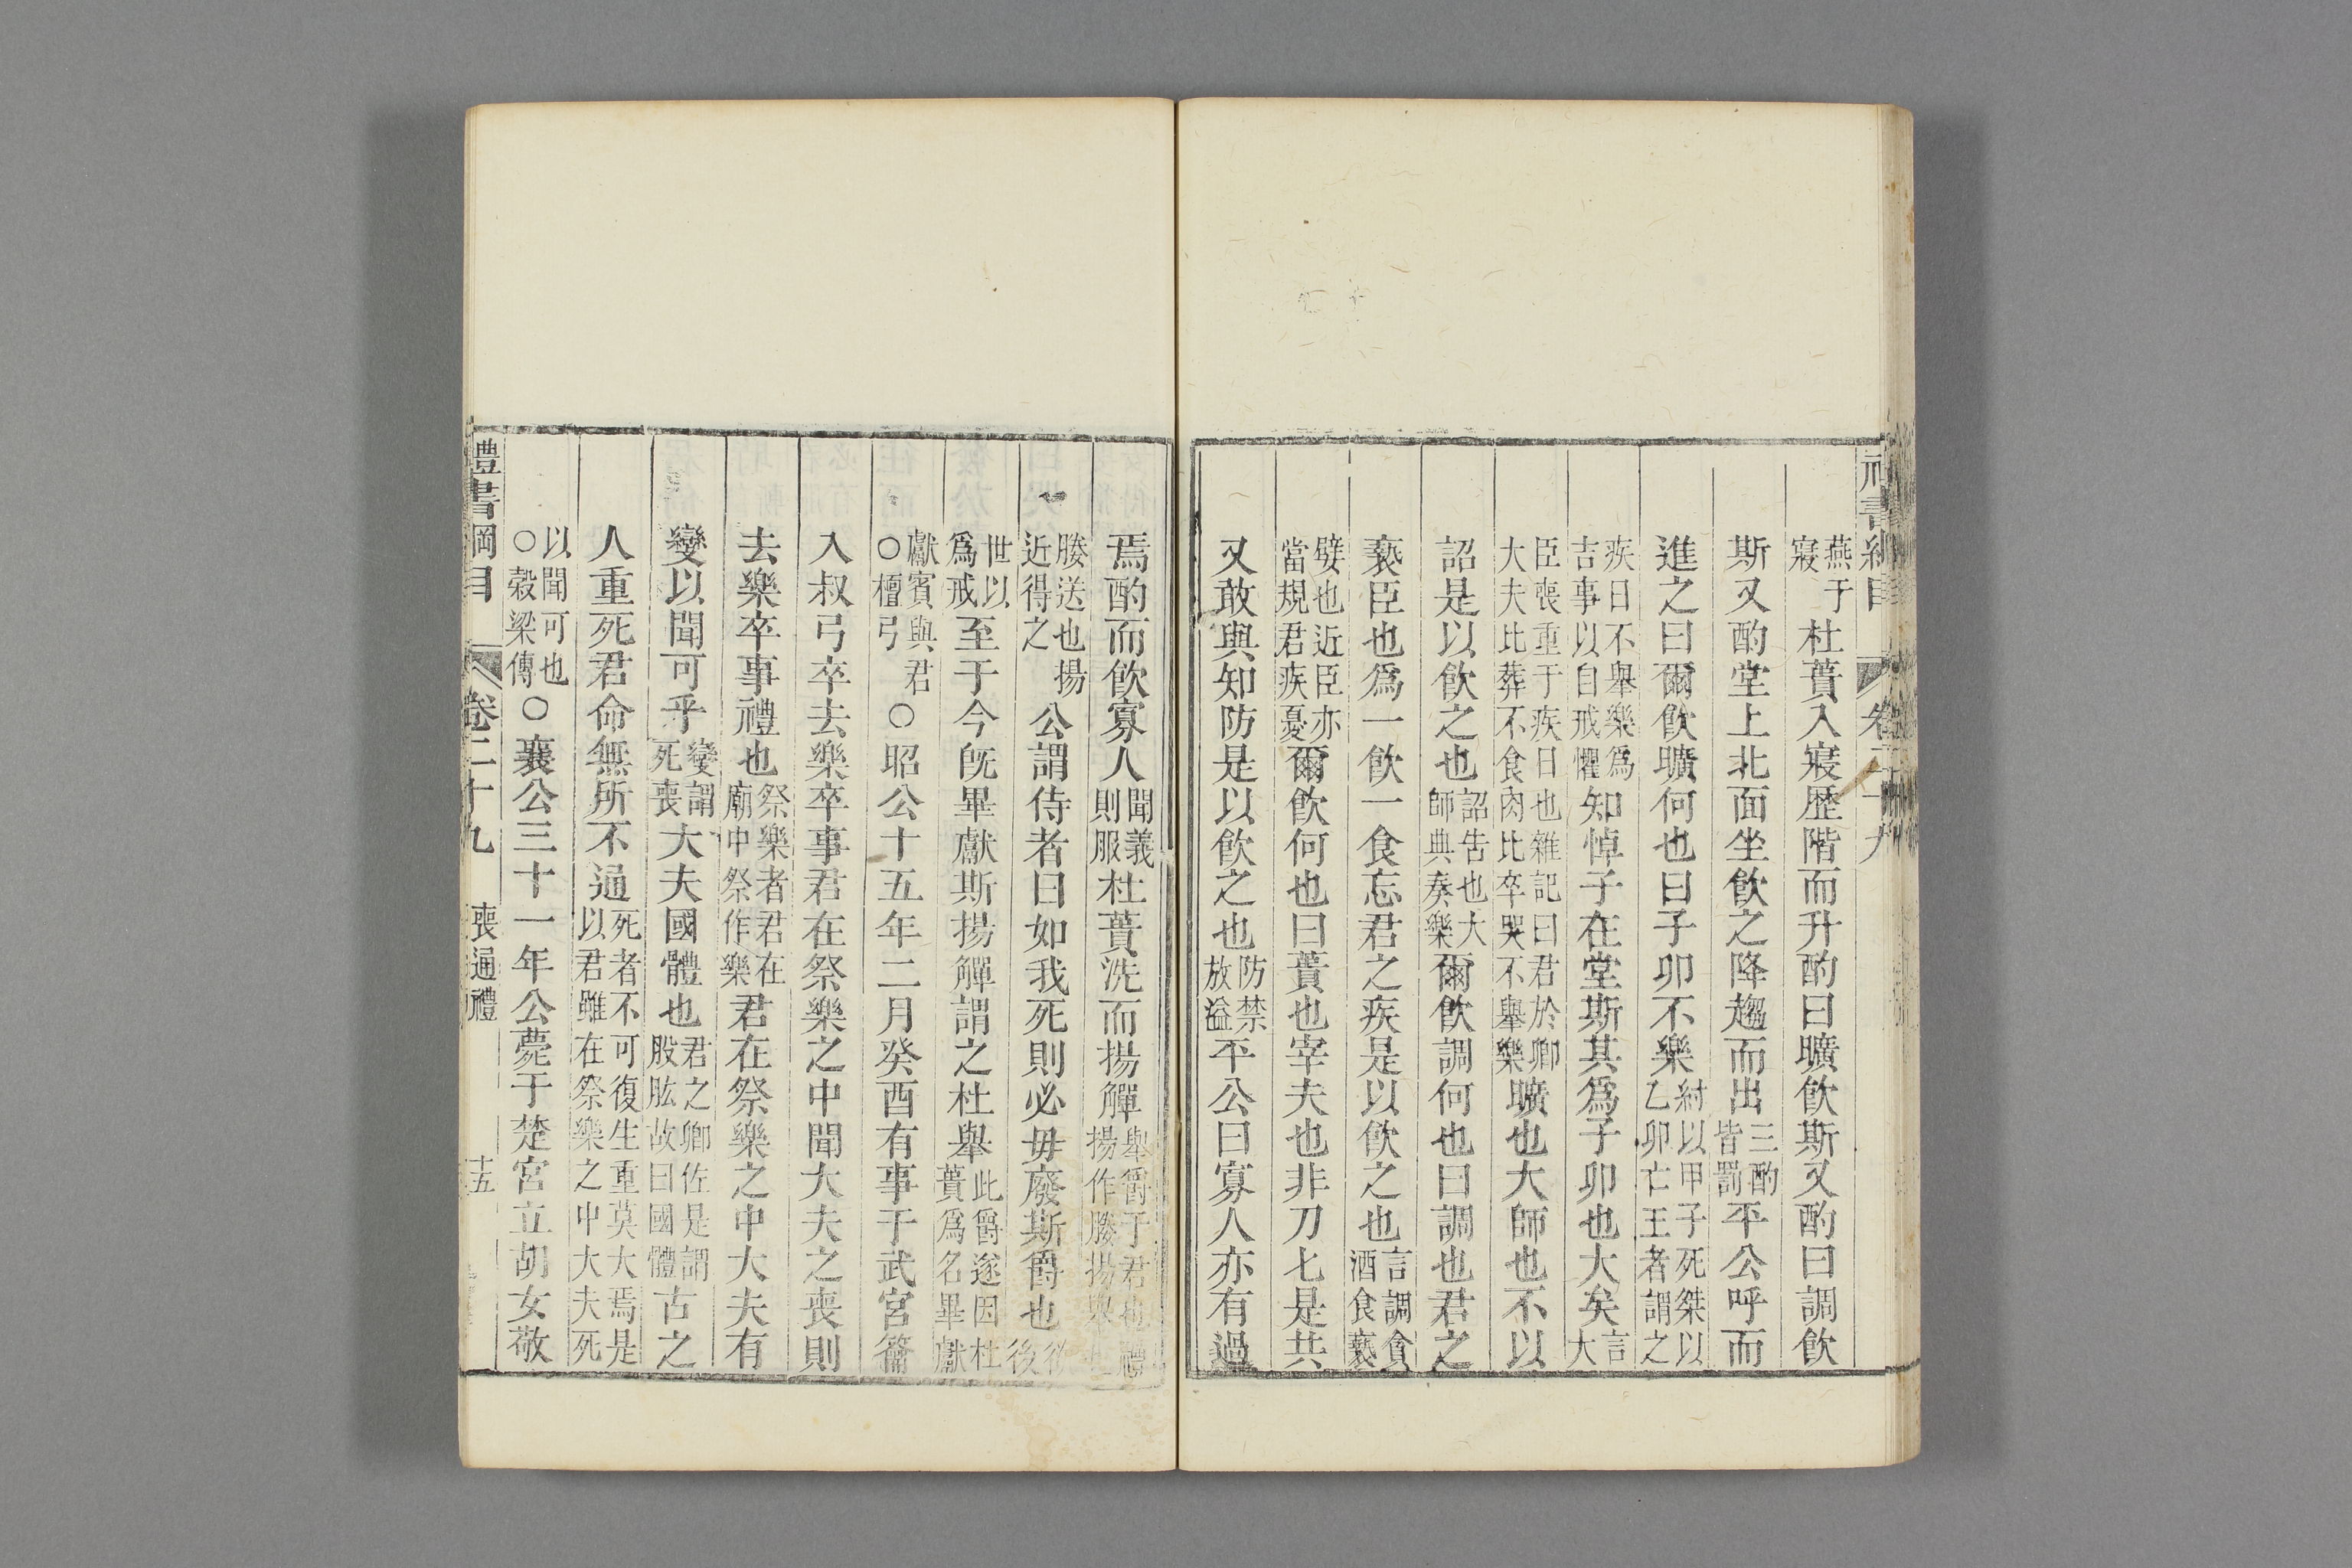 燕于寢杜蕢入寢歷階而升酌曰曠飲斯又酌曰調飲
斯又酌堂上北面坐飲之降趨而出三酌皆罰平公呼而
進之曰爾飲曠何也曰子卯不樂紂以甲子死桀以乙卯亡王者謂之
疾日不舉樂爲吉事以自戒懼知悼子在堂斯其爲子卯也大矣言大
臣喪重于疾日也雜記曰君於卿大夫比葬不食肉比卒哭不舉樂曠也大師也不以
詔是以飲之也詔告也大師典奏樂爾飲調何也曰調也君之
褻臣也爲一飲一食忘君之疾是以飲之也言調貪酒食褻
嬖也近臣亦當規君疾憂爾飲何也曰蕢也宰夫也非刀匕是共
又敢與知防是以飲之也防禁放溢平公曰寡人亦有過
焉酌而飲寡人聞義則服杜蕢洗而揚觶舉爵于君也禮揚作媵揚與
媵送也揚近得之公謂侍者曰如我死則必毋廢斯爵也後
世以爲戒至于今既畢獻斯揚觶謂之杜舉此爵遂因杜蕢爲名畢獻
獻賓與君○檀弓○昭公十五年二月癸酉有事于武宮籥
入叔弓卒去樂卒事君在祭樂之中聞大夫之喪則
去樂卒事禮也祭樂者君在廟中祭作樂君在祭樂之中大夫有
變以聞可乎變謂死喪大夫國體也君之卿佐是謂股肱故曰國體古之
人重死君命無所不通死者不可復生重莫大焉是以君雖在祭樂之中大夫死
以聞可也○穀梁傳○襄公三十一年公薨于楚宮立胡女敬
禮書綱目 卷二十九 喪通禮 十五